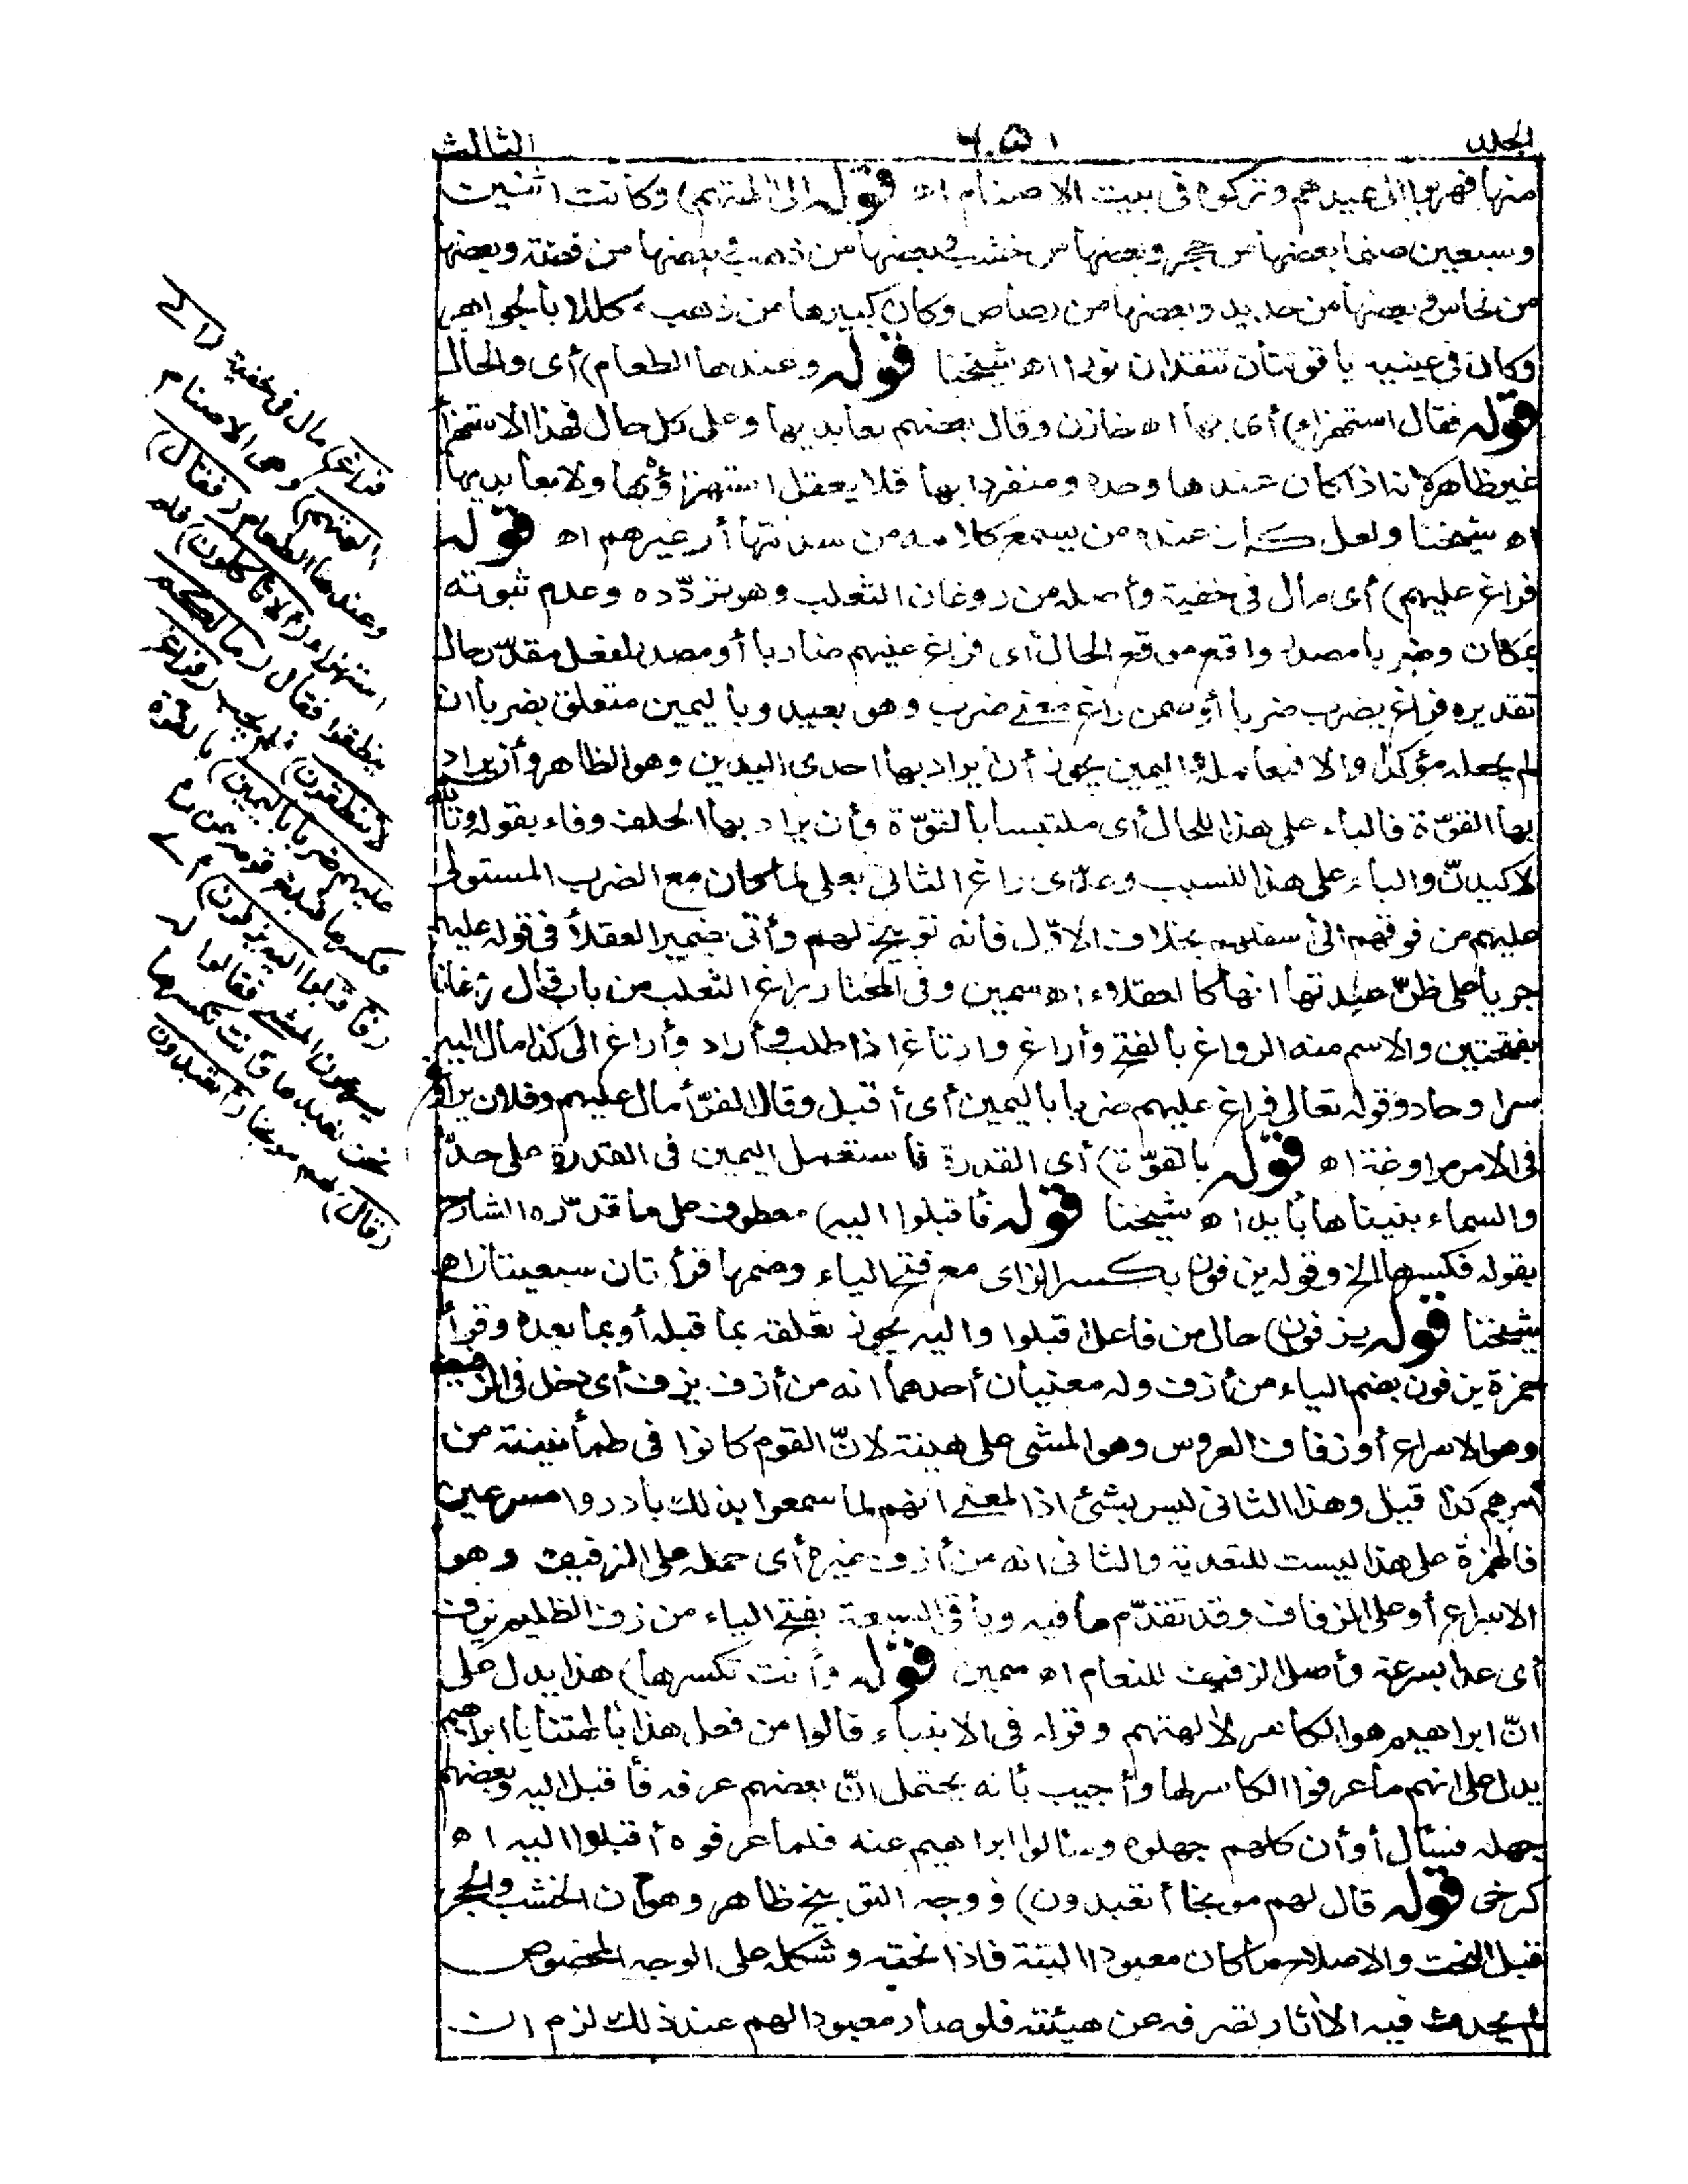 الجلد ٦٠٥١ الثالث
منها فهربوا الى عيدهم وتركوه فى بيت الاصنام اه قوله الى آلهتهم) وكانت اثنين
وسبعين صنما بعضها من حجر وبعضها من خشب وبعضها من ذهب وبعضها من فضة وبعضها
من نحاس وبعضها من حديد وبعضها من رصاص وكان كبيرها من ذهب مكللا بالجواهر
وكان فى عينيه ياقوتتان تتقدان نورا اه شيخنا قوله وعندها الطعام) أى والحال
قوله فقال استهزاء) أى بها اه خازن وقال بعضهم بعابديها وعلى كل حال فهذا الاستهزأ
غير ظاهر لانه اذا كان عندها وحده ومنفردا بها فلا يعقل استهزاؤه بها ولا بعابديها
اه شيخنا ولعل كان عنده من يسمع كلامه من سدنتها أو غيرهم اه قوله
فراغ عليهم) أى مال فى خفية وأصله من روغان الثعلب وهو تردّده وعدم ثبوته
بمكان وضربا مصدر واقع موقع الحال أى فراغ عليهم ضاربا أو مصدر لفعل مقدّر حال
تقديره فراغ يضرب ضربا أو ضمن راغ معنى ضرب وهو بعيد وباليمين متعلق بضربا ان
لم يجعله مؤكدا والا فبعامله واليمين يجوز أن يراد بها احدى اليدين وهو الظاهر وأن يراد
بها القوّة فالباء على هذا للحال أى ملتبسا بالقوّة وأن يراد بها الحلف وفاء بقوله وتالله
لاكيدنّ والباء على هذا للسبب وعدّى راغ الثانى بعلى لما كان مع الضرب المستولى
عليهم من فوقهم الى أسفلهم بخلاف الاوّل فانه توبيخ لهم وأتى بضمير العقلأ فى قوله عليهم
جريا على ظنّ عبدتها انها كالعقلاء اه سمين وفى المختار راغ الثعلب من باب قال روغانا
بفتحتين والاسم منه الرواغ بالفتح وأراغ وارتاغ اذا طلب وأراد وأراغ الى كذا مال اليه
سرا وحاد وقوله تعالى فراغ عليهم ضربا باليمين أى أقبل وقال الفرّأ مال عليهم وفلان يراوغ
فى الامر مراوغة اه قوله بالقوّة) أى القدرة فاستعمل اليمين فى القدرة على حدّ
والسماء بنيناها بأيد اه شيخنا قوله فأقبلوا اليه) معطوف على ما قدّره الشارح
بقوله فكسرها الخ وقوله يزفون بكسر الزاى مع فتح الياء وضمها قرأتان سبعيتان اه
شيخنا قوله يزفون) حال من فاعل اقبلوا واليه يجوز تعلقه بما قبله أو بما بعده وقرأ
حمزة يزفون بضم الياء من أزف وله معنيان أحدهما انه من أزف يزف أى دخل فى الزفيف
وهو الاسراع أو زفاف العروس وهو المشى على هينة لانّ القوم كانوا فى طمأنينة من
أمرهم كذا قيل وهذا الثانى ليس بشئ اذ المعنى انهم لما سمعوا بذلك بادروا مسرعين
فالهمزة على هذا ليست للتعدية والثانى انه من أزف غيره أى حمله على الزفيف وهو
الاسراع أو على الزفاف وقد تقدّم ما فيه وباقى السبعة بفتح الياء من زف الظليم يزف
أى عدا بسرعة وأصل الزفيف للنعام اه سمين قوله وأنت تكسرها) هذا يدل على
انّ ابراهيم هو الكاسر لآلهتهم وقوله فى الانبياء قالوا من فعل هذا بآلهتنا يا ابراهيم
يدل على انهم ما عرفوا الكاسر لها وأجيب بأنه يحتمل انّ بعضهم عرفه فأقبل اليه وبعضهم
جهله فسأل أو أن كلهم جهلوه وسألوا ابراهيم عنه فلما عرفوه أقبلوا اليه اه
كرخى قوله قال لهم موبخا أتعبدون) ووجه التوبيخ ظاهر وهو أن الخشب والحجر
قبل النحت والاصلاح ما كان معبودا البتة فاذا نحته وشكله على الوجه المخصوص
لم يحدث فيه الا آثار تصرفه عن هيئته فلو صار معبودا لهم عند ذلك لزم ان
فراغ) مال فى خفية (الى
آلهتهم) وهى الاصنام
وعندها الطعام (فقال)
استهزاء (ألا تأكلون) فلم
ينطقوا فقال (ما لكم
لا تنطقون) فلم يجب (فراغ
عليهم ضربا باليمين) بالقوة
فكسرها فبلغ قومه ممن رآه
(فأقبلوا اليه يزفون) أى
يسرعون المشى فقالوا له
نحن نعبدها وأنت تكسرها
(قال) لهم موبخا (أتعبدون